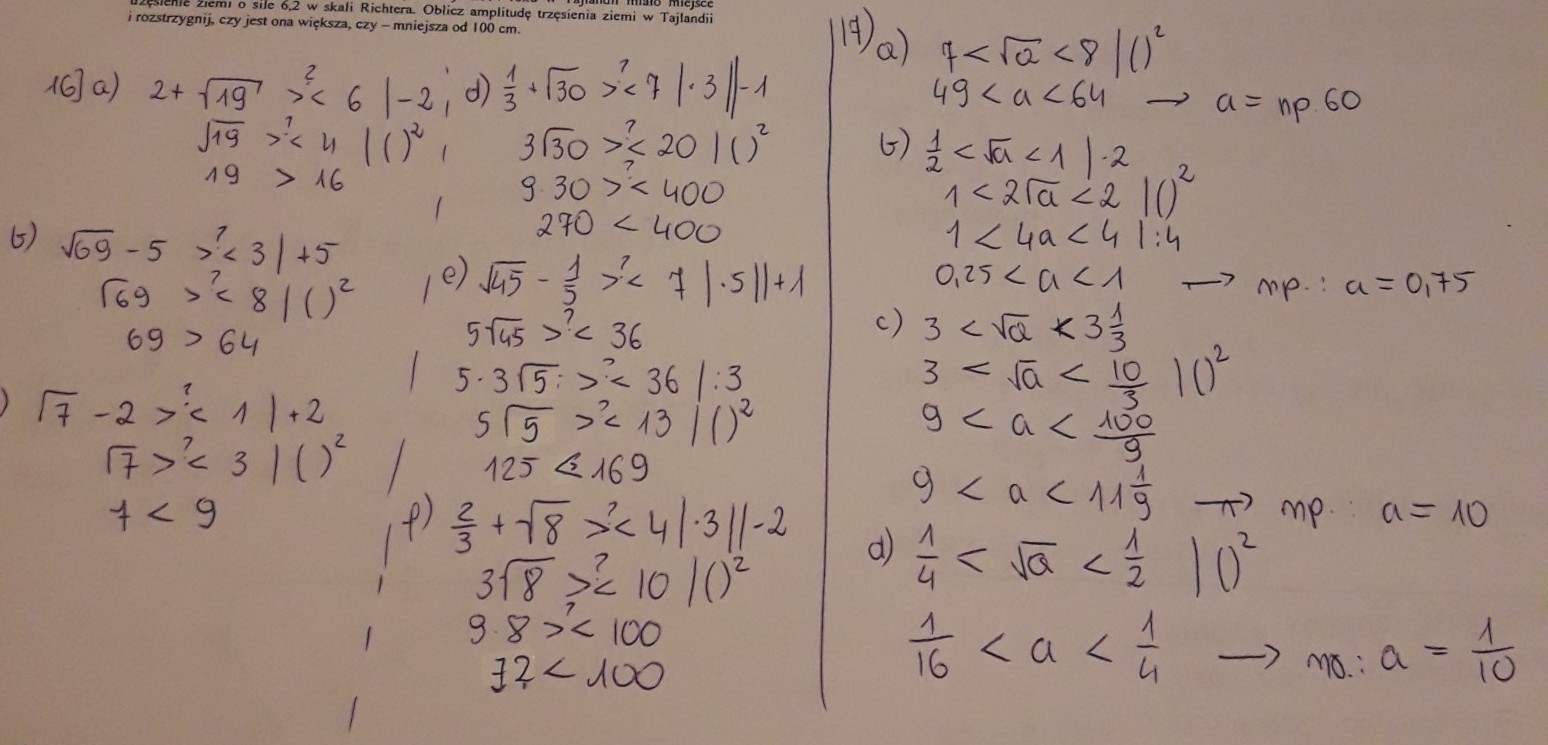 trzęsienie ziemi o sile 6,2 w skali Richtera. Oblicz amplitudę trzęsienia ziemi w Tajlandii
i rozstrzygnij, czy jest ona większa, czy – mniejsza od 100 cm.
16) a) 2 + √19 >?< 6 | -2
√19 >?< 4 | ()²
19 > 16
b) √69 - 5 >?< 3 | +5
√69 >?< 8 | ()²
69 > 64
) √7 - 2 >?< 1 | +2
√7 >?< 3 | ()²
7 < 9
d) 1/3 + √30 >?< 7 | ·3 || -1
3√30 >?< 20 | ()²
9·30 >?< 400
270 < 400
e) √45 - 1/5 >?< 7 | ·5 || +1
5√45 >?< 36
5·3√5 >?< 36 | :3
5√5 >?< 13 | ()²
125 < 169
f) 2/3 + √8 >?< 4 | ·3 || -2
3√8 >?< 10 | ()²
9·8 >?< 100
72 < 100
17) a) 7 < √a < 8 | ()²
49 < a < 64 → a = np. 60
b) 1/2 < √a < 1 | ·2
1 < 2√a < 2 | ()²
1 < 4a < 4 | :4
0,25 < a < 1 → np.: a = 0,75
c) 3 < √a < 3 1/3
3 < √a < 10/3 | ()²
9 < a < 100/9
9 < a < 11 1/9 → np.: a = 10
d) 1/4 < √a < 1/2 | ()²
1/16 < a < 1/4 → np.: a = 1/10